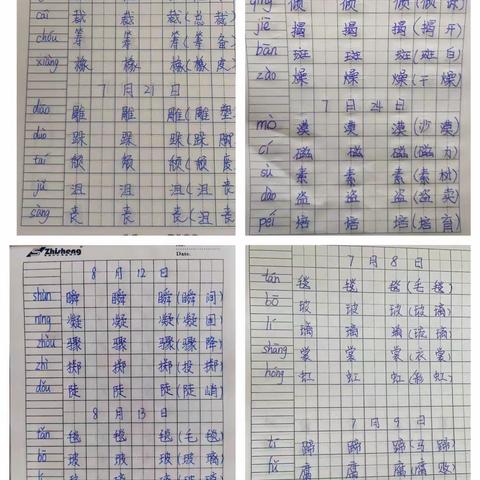 cái 裁 裁 裁(总裁)
chóu 筹 筹 筹(筹备)
xiàng 橡 橡 橡(橡皮)
7月21日
diāo 雕 雕 雕(雕塑)
duò 跺 跺 跺(跺脚)
tuí 颓 颓 颓(颓废)
jǔ 沮 沮 沮(沮丧)
sàng 丧 丧 丧(沮丧)
jiē 揭 揭 揭(揭开)
bān 斑 斑 斑(斑白)
zào 燥 燥 燥(干燥)
7月24日
mò 漠 漠 漠(沙漠)
cí 磁 磁 磁(磁力)
sù 素 素 素(素材)
dào 盗 盗 盗(盗卖)
péi 培 培 培(培育)
Zhisheng
Date:
8月12日
shùn 瞬 瞬 瞬(瞬间)
níng 凝 凝 凝(凝固)
zhòu 骤 骤 骤(骤降)
zhì 掷 掷 掷(投掷)
dǒu 陡 陡 陡(陡峭)
8月13日
tǎn 毯 毯 毯(毛毯)
bō 玻 玻 玻(玻璃)
7月8日
tǎn 毯 毯 毯(毛毯)
bō 玻 玻 玻(玻璃)
lí 璃 璃 璃(琉璃)
shāng 裳 裳 裳(衣裳)
hóng 虹 虹 虹(彩虹)
7月9日
tí 蹄 蹄 蹄(马蹄)
fǔ 腐 腐 腐(腐败)